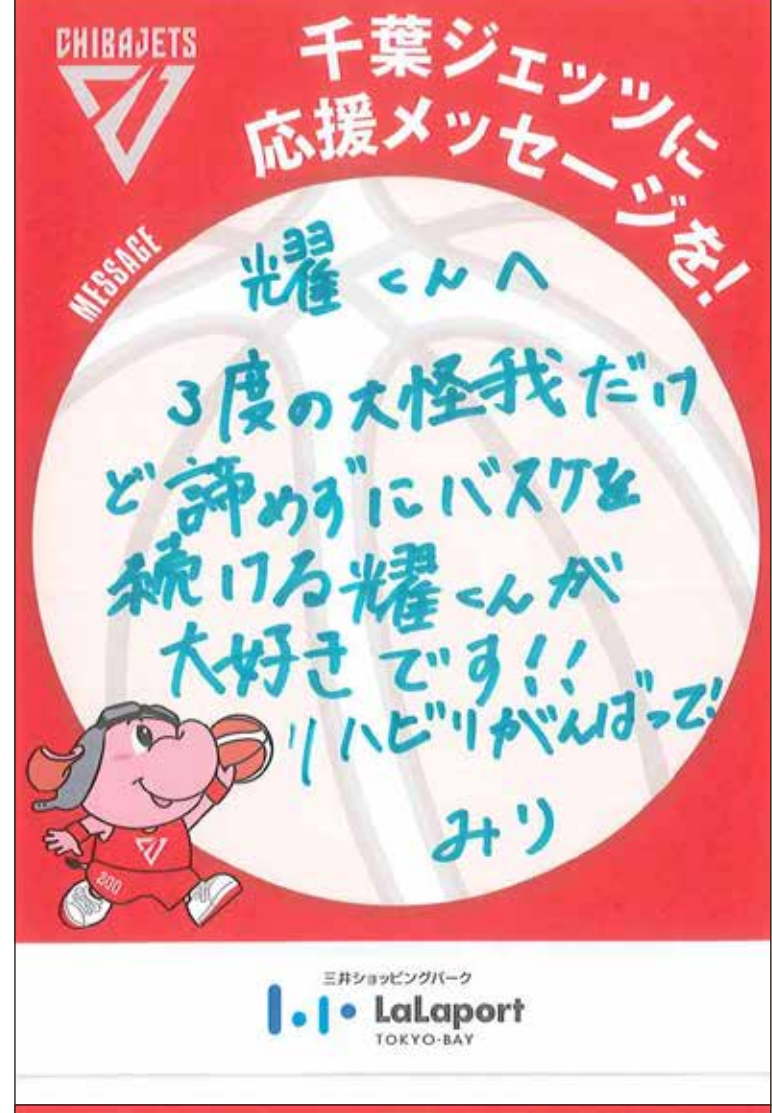 CHIBAJETS
千葉ジェッツに
応援メッセージを!
MESSAGE
耀くんへ
3度の大怪我だけ
ど諦めずにバスケを
続ける耀くんが
大好きです!!
リハビリがんばって!
みり
200
三井ショッピングパーク
LaLaport
TOKYO-BAY